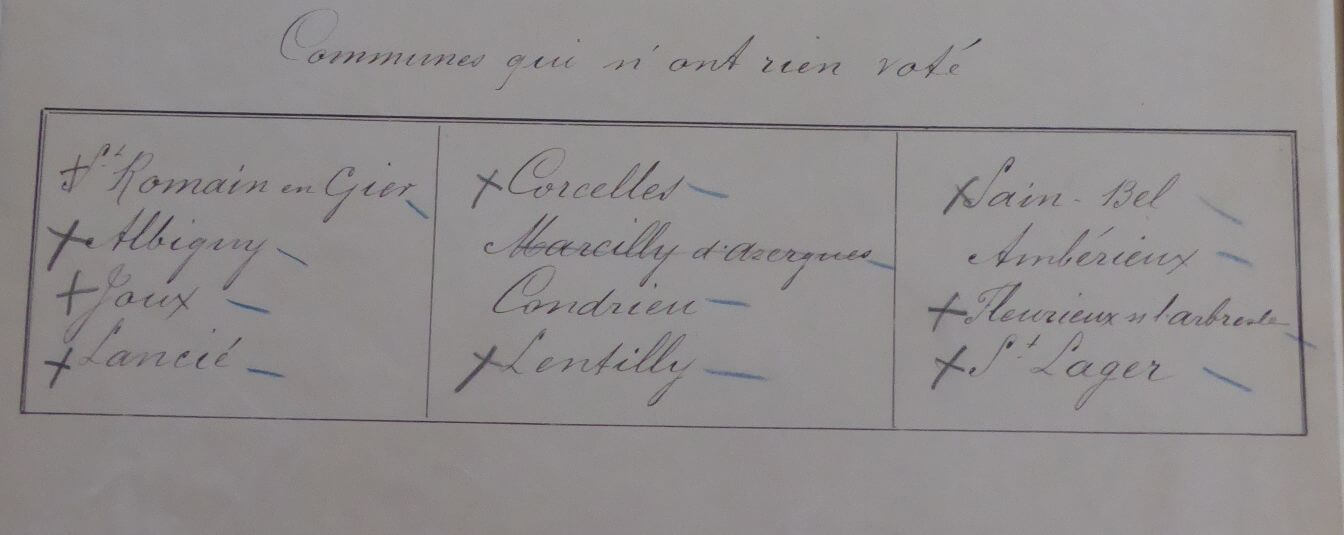 Communes qui n'ont rien voté
St Romain en Gier
Albigny
Joux
Lancié
Corcelles
Marcilly d'azergues
Condrieu
Lentilly
Sain-Bel
Ambérieux
Fleurieux s l'arbresle
St Lager